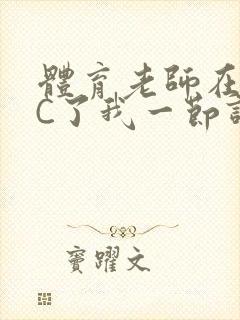 體育老師在
C了我一節
竇躍文